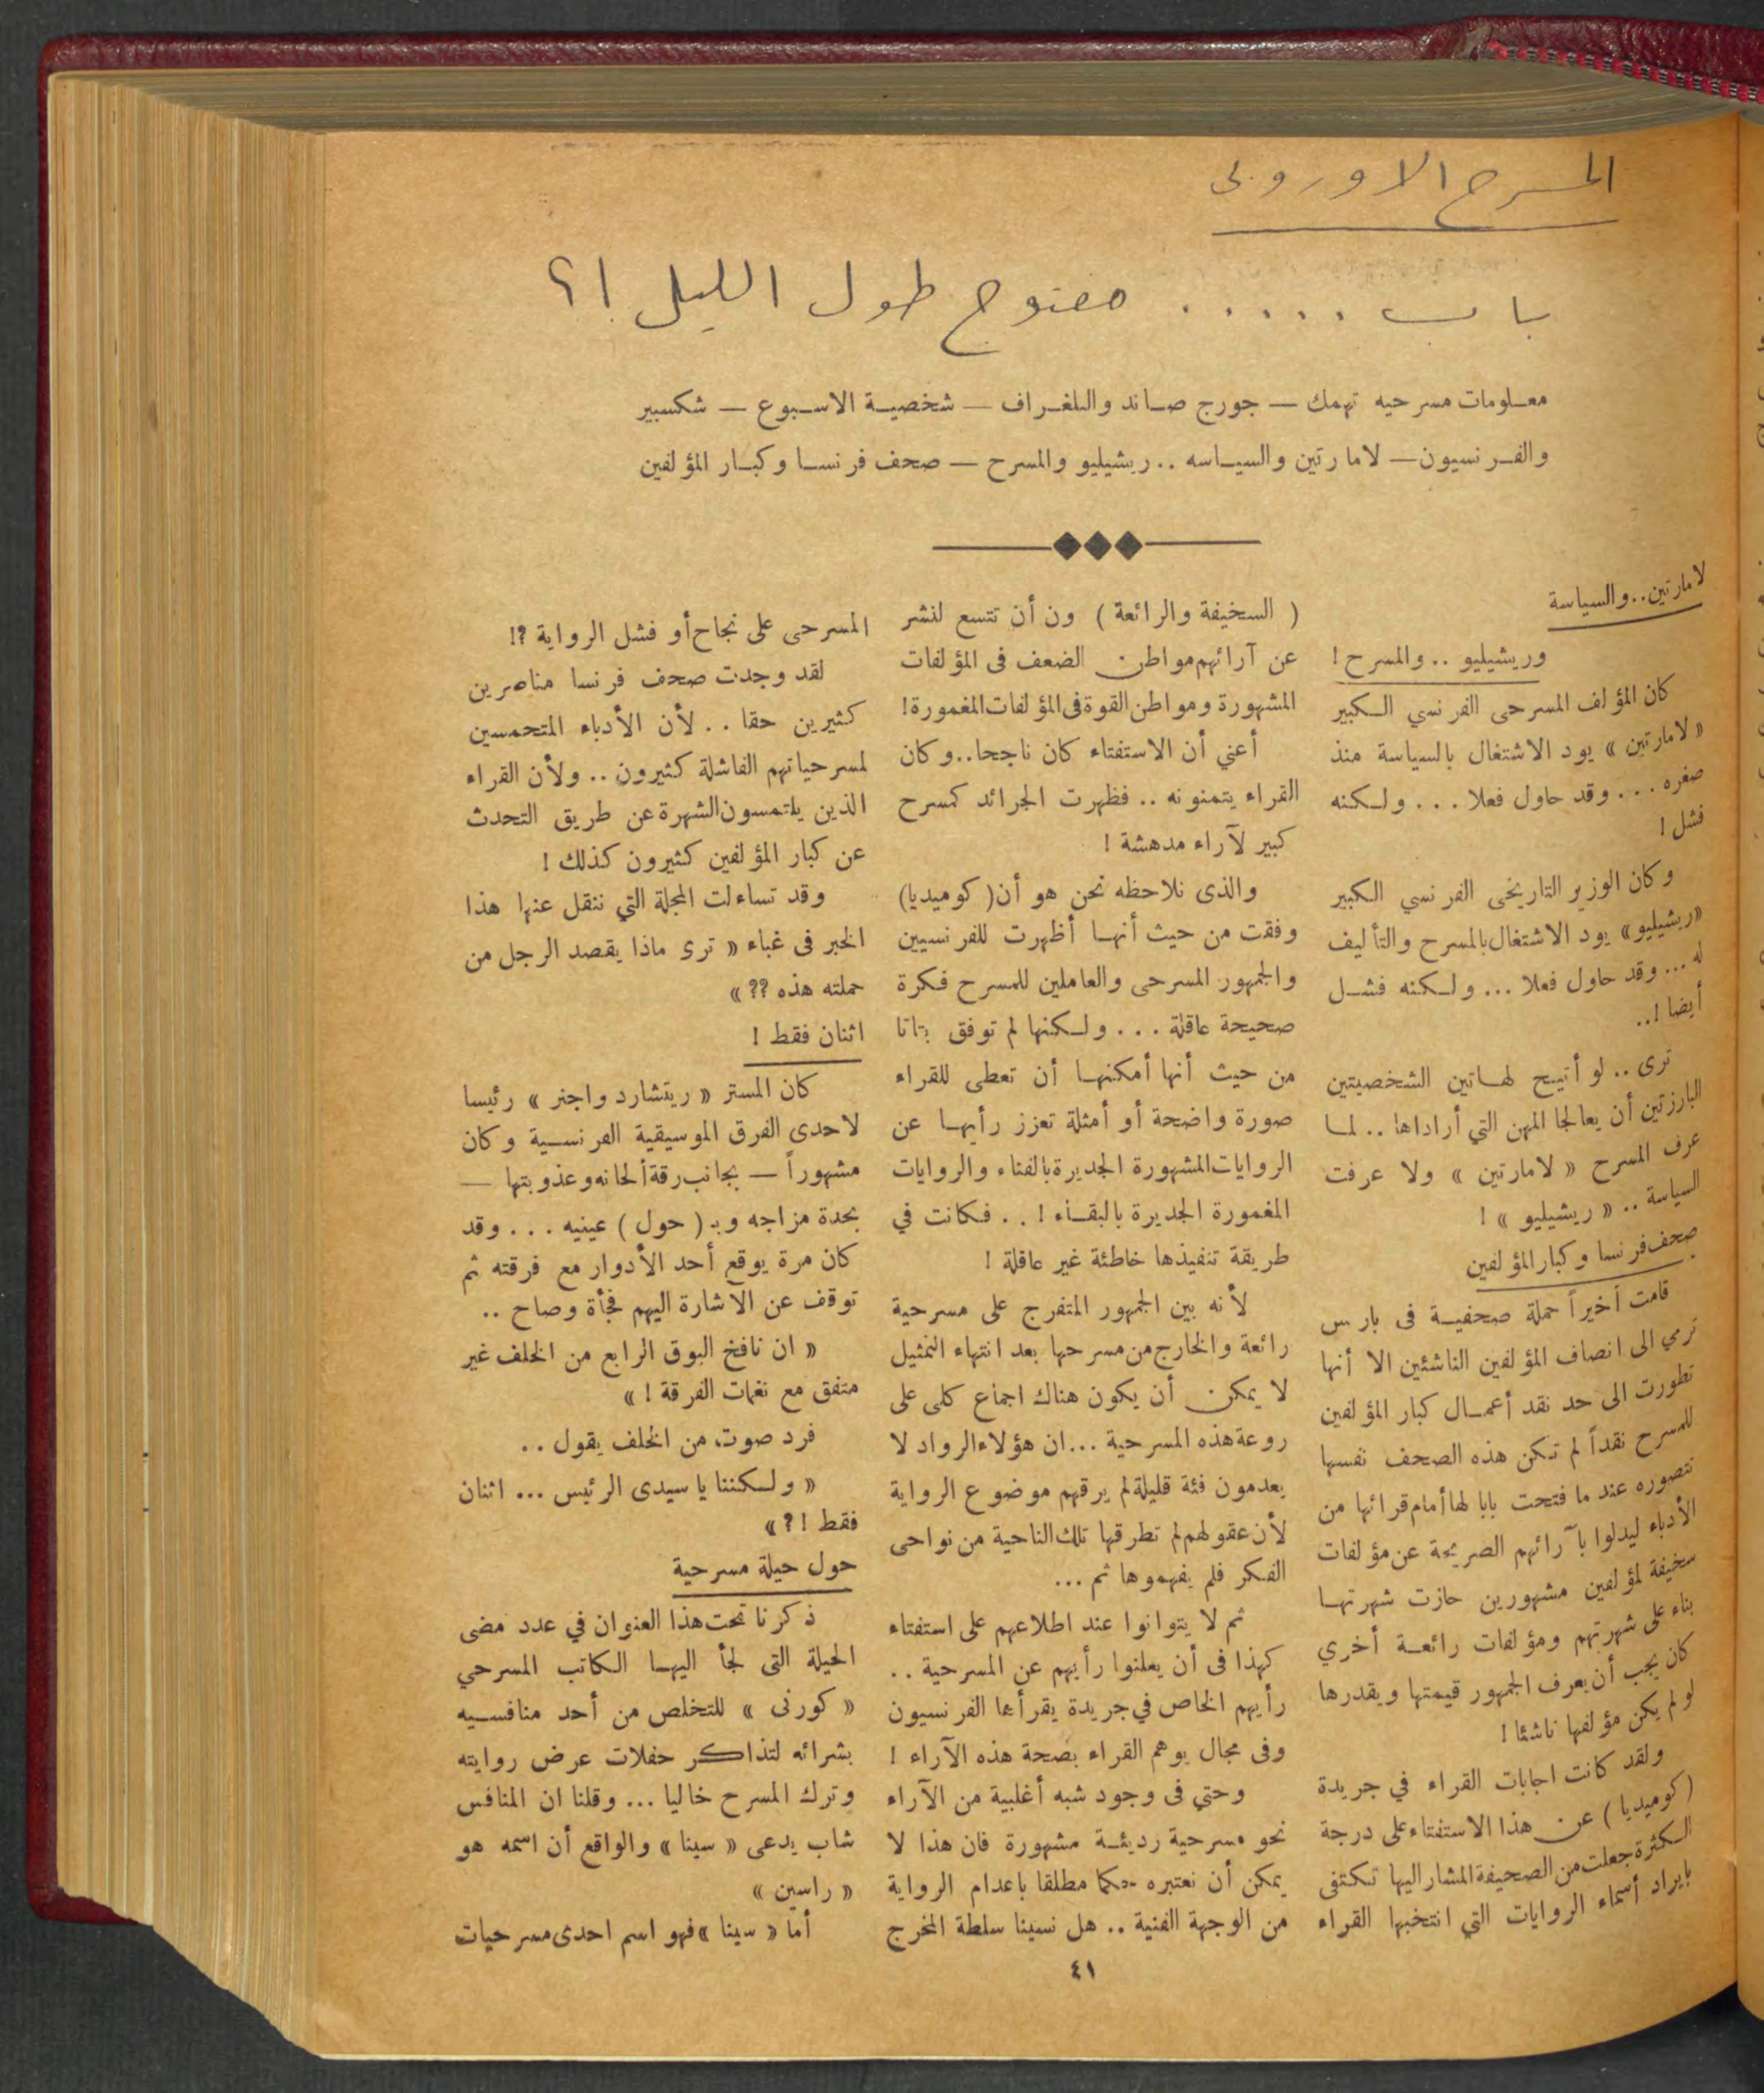 المسرح الاوروبى
باب ..... مفتوح طول الليل !؟
معلومات مسرحيه تهمك — جورج صاند والتلغراف — شخصية الاسبوع — شكسبير
والفرنسيون — لامارتين والسياسه .. ريشيليو والمسرح — صحف فرنسا وكبار المؤلفين
لامارتين .. والسياسة
وريشيليو .. والمسرح !
كان المؤلف المسرحى الفرنسي الكبير
« لامارتين » يود الاشتغال بالسياسة منذ
صغره ... وقد حاول فعلا ... ولكنه
فشل !
وكان الوزير التاريخى الفرنسي الكبير
«ريشيليو» يود الاشتغال بالمسرح والتأليف
له ... وقد حاول فعلا ... ولكنه فشل
أيضا !..
ترى .. لو أتيح لهاتين الشخصيتين
البارزتين أن يعالجا المهن التي أراداها .. لما
عرف المسرح « لامارتين » ولا عرفت
السياسة .. « ريشيليو » !
صحف فرنسا وكبار المؤلفين
قامت أخيراً حملة صحفية فى باريس
ترمي الى انصاف المؤلفين الناشئين الا أنها
تطورت الى حد نقد أعمال كبار المؤلفين
للمسرح نقداً لم تكن هذه الصحف نفسها
تتصوره عند ما فتحت بابا لها أمام قرائها من
الأدباء ليدلوا بآرائهم الصريحة عن مؤلفات
سخيفة لمؤلفين مشهورين حازت شهرتها
بناء على شهرتهم ومؤلفات رائعة أخري
كان يجب أن يعرف الجمهور قيمتها ويقدرها
لو لم يكن مؤلفها ناشئا !
ولقد كانت اجابات القراء في جريدة
( كوميديا ) عن هذا الاستفتاء على درجة
الكثرة جعلت من الصحيفة المشار اليها تكتفى
بايراد أسماء الروايات التي انتخبها القراء
( السخيفة والرائعة ) ون أن تتسع لنشر
عن آرائهم مواطن الضعف فى المؤلفات
المشهورة ومواطن القوة فى المؤلفات المغمورة !
أعني أن الاستفتاء كان ناجحا .. وكان
القراء يتمنونه .. فظهرت الجرائد كمسرح
كبير لآراء مدهشة !
والذى نلاحظه نحن هو أن ( كوميديا )
وفقت من حيث أنها أظهرت للفرنسيين
والجمهور المسرحى والعاملين للمسرح فكرة
صحيحة عاقلة ... ولكنها لم توفق بتاتا
من حيث أنها أمكنها أن تعطى للقراء
صورة واضحة أو أمثلة تعزز رأيها عن
الروايات المشهورة الجديرة بالفناء والروايات
المغمورة الجديرة بالبقاء ! .. فكانت في
طريقة تنفيذها خاطئة غير عاقلة !
لأنه بين الجمهور المتفرج على مسرحية
رائعة والخارج من مسرحها بعد انتهاء التمثيل
لا يمكن أن يكون هناك اجماع كلى على
روعة هذه المسرحية ... ان هؤلاء الرواد لا
يعدمون فئة قليلة لم يرقهم موضوع الرواية
لأن عقولهم لم تطرقها تلك الناحية من نواحى
الفكر فلم يفهموها ثم ...
ثم لا يتوانوا عند اطلاعهم على استفتاء
كهذا فى أن يعلنوا رأيهم عن المسرحية ..
رأيهم الخاص في جريدة يقرأها الفرنسيون
وفى مجال يوهم القراء بصحة هذه الآراء !
وحتي فى وجود شبه أغلبية من الآراء
نحو مسرحية رديئة مشهورة فان هذا لا
يمكن أن نعتبره حكما مطلقا باعدام الرواية
من الوجهة الفنية .. هل نسينا سلطة المخرج
المسرحى على نجاح أو فشل الرواية ؟!
لقد وجدت صحف فرنسا مناصرين
كثيرين حقا .. لأن الأدباء المتحمسين
لمسرحياتهم الفاشلة كثيرون .. ولأن القراء
الذين يلتمسون الشهرة عن طريق التحدث
عن كبار المؤلفين كثيرون كذلك !
وقد تساءلت المجلة التي ننقل عنها هذا
الخبر فى غباء « ترى ماذا يقصد الرجل من
حملته هذه ؟؟ »
اثنان فقط !
كان المستر « ريتشارد واجنر » رئيسا
لاحدى الفرق الموسيقية الفرنسية وكان
مشهوراً — بجانب رقة ألحانه وعذوبتها —
بحدة مزاجه وبـ ( حول ) عينيه ... وقد
كان مرة يوقع أحد الأدوار مع فرقته ثم
توقف عن الاشارة اليهم فجأة وصاح ..
« ان نافخ البوق الرابع من الخلف غير
متفق مع نغمات الفرقة ! »
فرد صوت من الخلف يقول ..
« ولكننا يا سيدى الرئيس ... اثنان
فقط !؟ »
حول حيلة مسرحية
ذكرنا تحت هذا العنوان في عدد مضى
الحيلة التى لجأ اليها الكاتب المسرحي
« كورنى » للتخلص من أحد منافسيه
بشرائه لتذاكر حفلات عرض روايته
وترك المسرح خاليا ... وقلنا ان المنافس
شاب يدعى « سينا » والواقع أن اسمه هو
« راسين »
أما « سينا » فهو اسم احدى مسرحيات
٤١